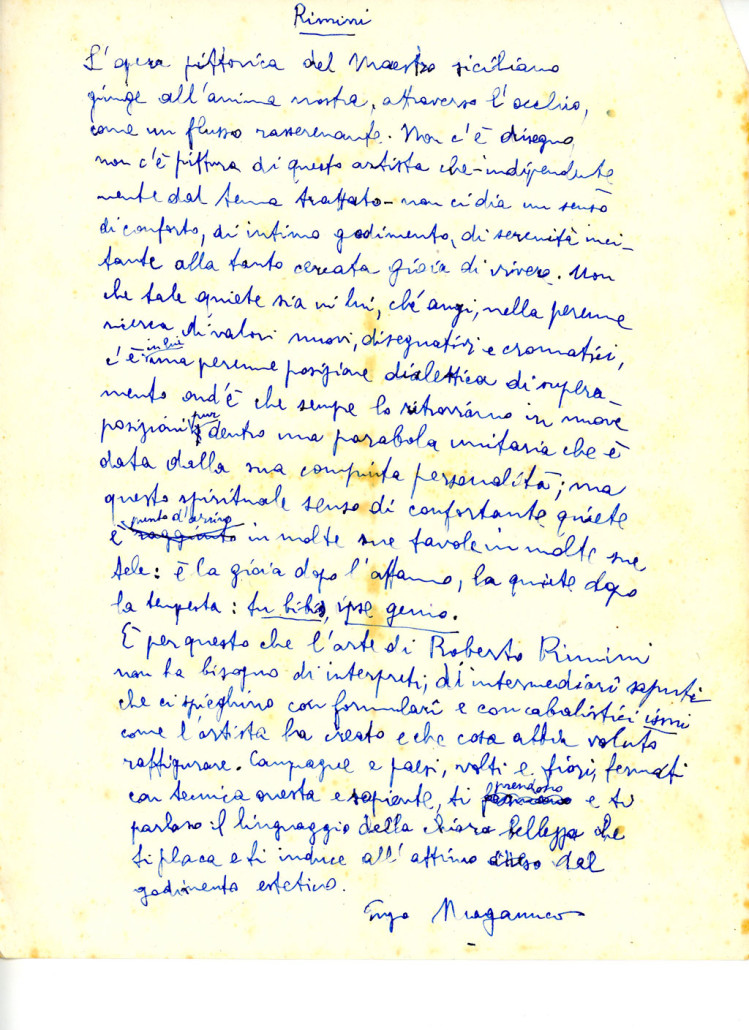 Rimini
L'opera pittorica del Maestro siciliano
giunge all'anima nostra, attraverso l'occhio,
come un flusso rasserenante. Non c'è disegno,
non c'è pittura di questo artista che - indipendente
mente dal tema trattato - non ci dia un senso
di conforto, di intimo godimento, di serenità inci-
tante alla tanto cercata gioia di vivere. Non
che tale quiete sia in lui, ché anzi, nella perenne
ricerca di valori nuovi, disegnativi e cromatici,
c'è in lui una perenne posizione dialettica di supera-
mento ond'è che sempre lo ritroviamo in nuove
posizioni pur dentro una parabola unitaria che è
data dalla sua compiuta personalità; ma
questo spirituale senso di confortante quiete
è raggiunto punto d'arrivo in molte sue tavole in molte sue
tele: è la gioia dopo l'affanno, la quiete dopo
la tempesta: tu bibis, ipse genio.
È per questo che l'arte di Roberto Rimini
non ha bisogno di interpreti, di intermediarî saputi
che ci spieghino con formularî e con cabalistici ismi
come l'artista ha creato e che cosa abbia voluto
raffigurare. Campagne e paesi, volti e fiori, fermati
con tecnica onesta e sapiente, ti prendono e ti
parlano il linguaggio della chiara bellezza che
ti placa e ti induce all'attimo del
godimento estetico.